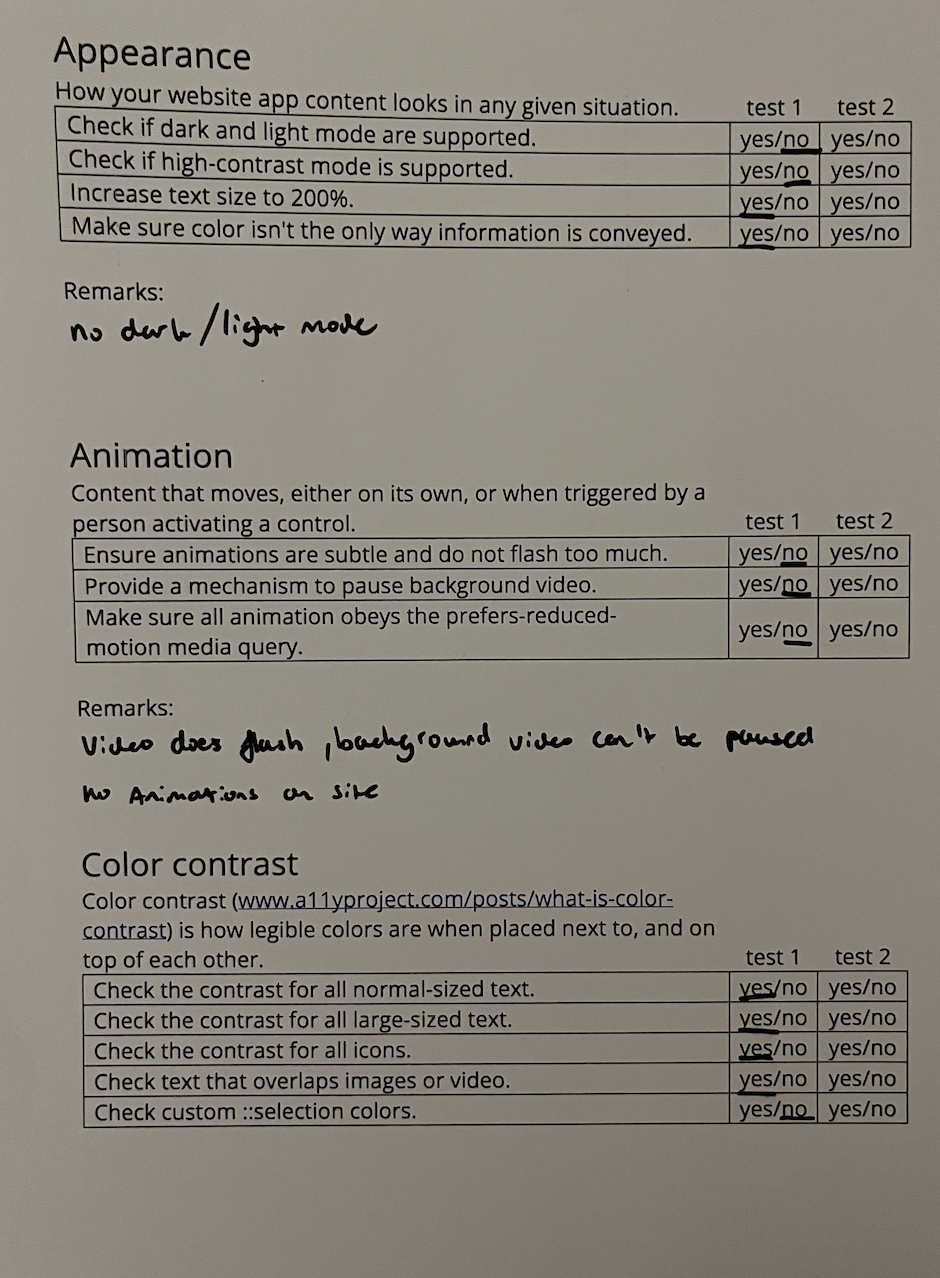 Appearance
How your website app content looks in any given situation. test 1 test 2
Check if dark and light mode are supported. yes/no yes/no
Check if high-contrast mode is supported. yes/no yes/no
Increase text size to 200%. yes/no yes/no
Make sure color isn't the only way information is conveyed. yes/no yes/no
Remarks:
no dark/light mode
Animation
Content that moves, either on its own, or when triggered by a
person activating a control. test 1 test 2
Ensure animations are subtle and do not flash too much. yes/no yes/no
Provide a mechanism to pause background video. yes/no yes/no
Make sure all animation obeys the prefers-reduced-
motion media query. yes/no yes/no
Remarks:
Video does flash, background video can't be paused
no Animations on site
Color contrast
Color contrast (www.a11yproject.com/posts/what-is-color-
contrast) is how legible colors are when placed next to, and on
top of each other. test 1 test 2
Check the contrast for all normal-sized text. yes/no yes/no
Check the contrast for all large-sized text. yes/no yes/no
Check the contrast for all icons. yes/no yes/no
Check text that overlaps images or video. yes/no yes/no
Check custom ::selection colors. yes/no yes/no